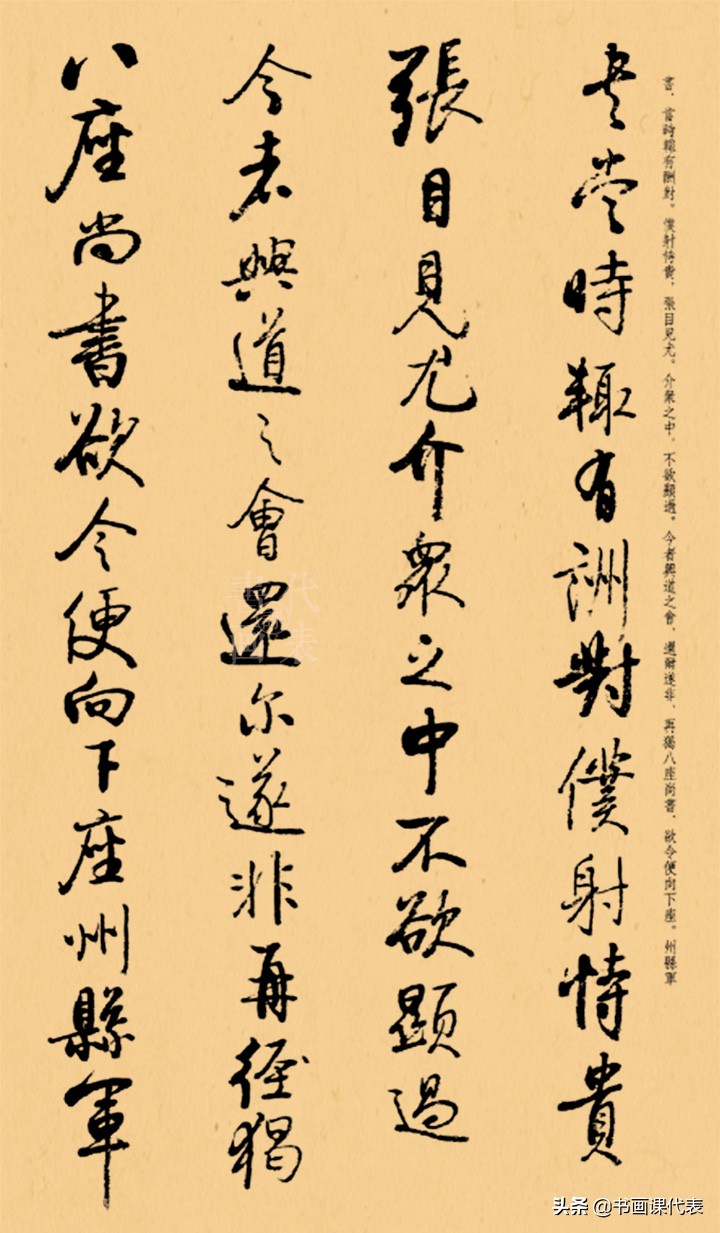 書、嘗時輒有酬對。僕射恃貴，張目見尤。介衆之中，不欲顯過。今者興道之會，還爾遂非，再猲八座尚書，欲令便向下座。州縣軍
書嘗時輒有詶對僕射恃貴
張目見尤介衆之中不欲顯過
今者興道之會還尔遂非再徑猲
八座尚書欲令便向下座州縣軍
头条 @书画课代表